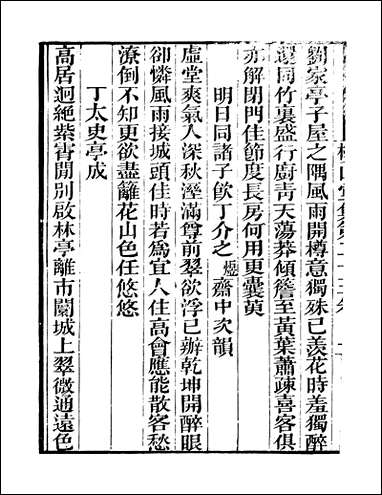 劉家亭子屋之隅風雨開樽意獨殊已羨花時羞獨醉
還同竹裏盛行廚青天蕩莽傾簷至黃葉蕭疎喜客俱
亦解閉門佳節度長房何用更囊萸
明日同諸子飲丁介之齋中次韻
虛堂爽氣人深秋溼滿尊前翠欲浮已辦乾坤開醉眼
卻憐風雨接城頭佳時若為宜人住高會應能散客愁
潦倒不知更欲盡籬花山色任悠悠
丁太史亭成
高居迥絶紫霄開別啟林亭離市闤城上翠微通遠色